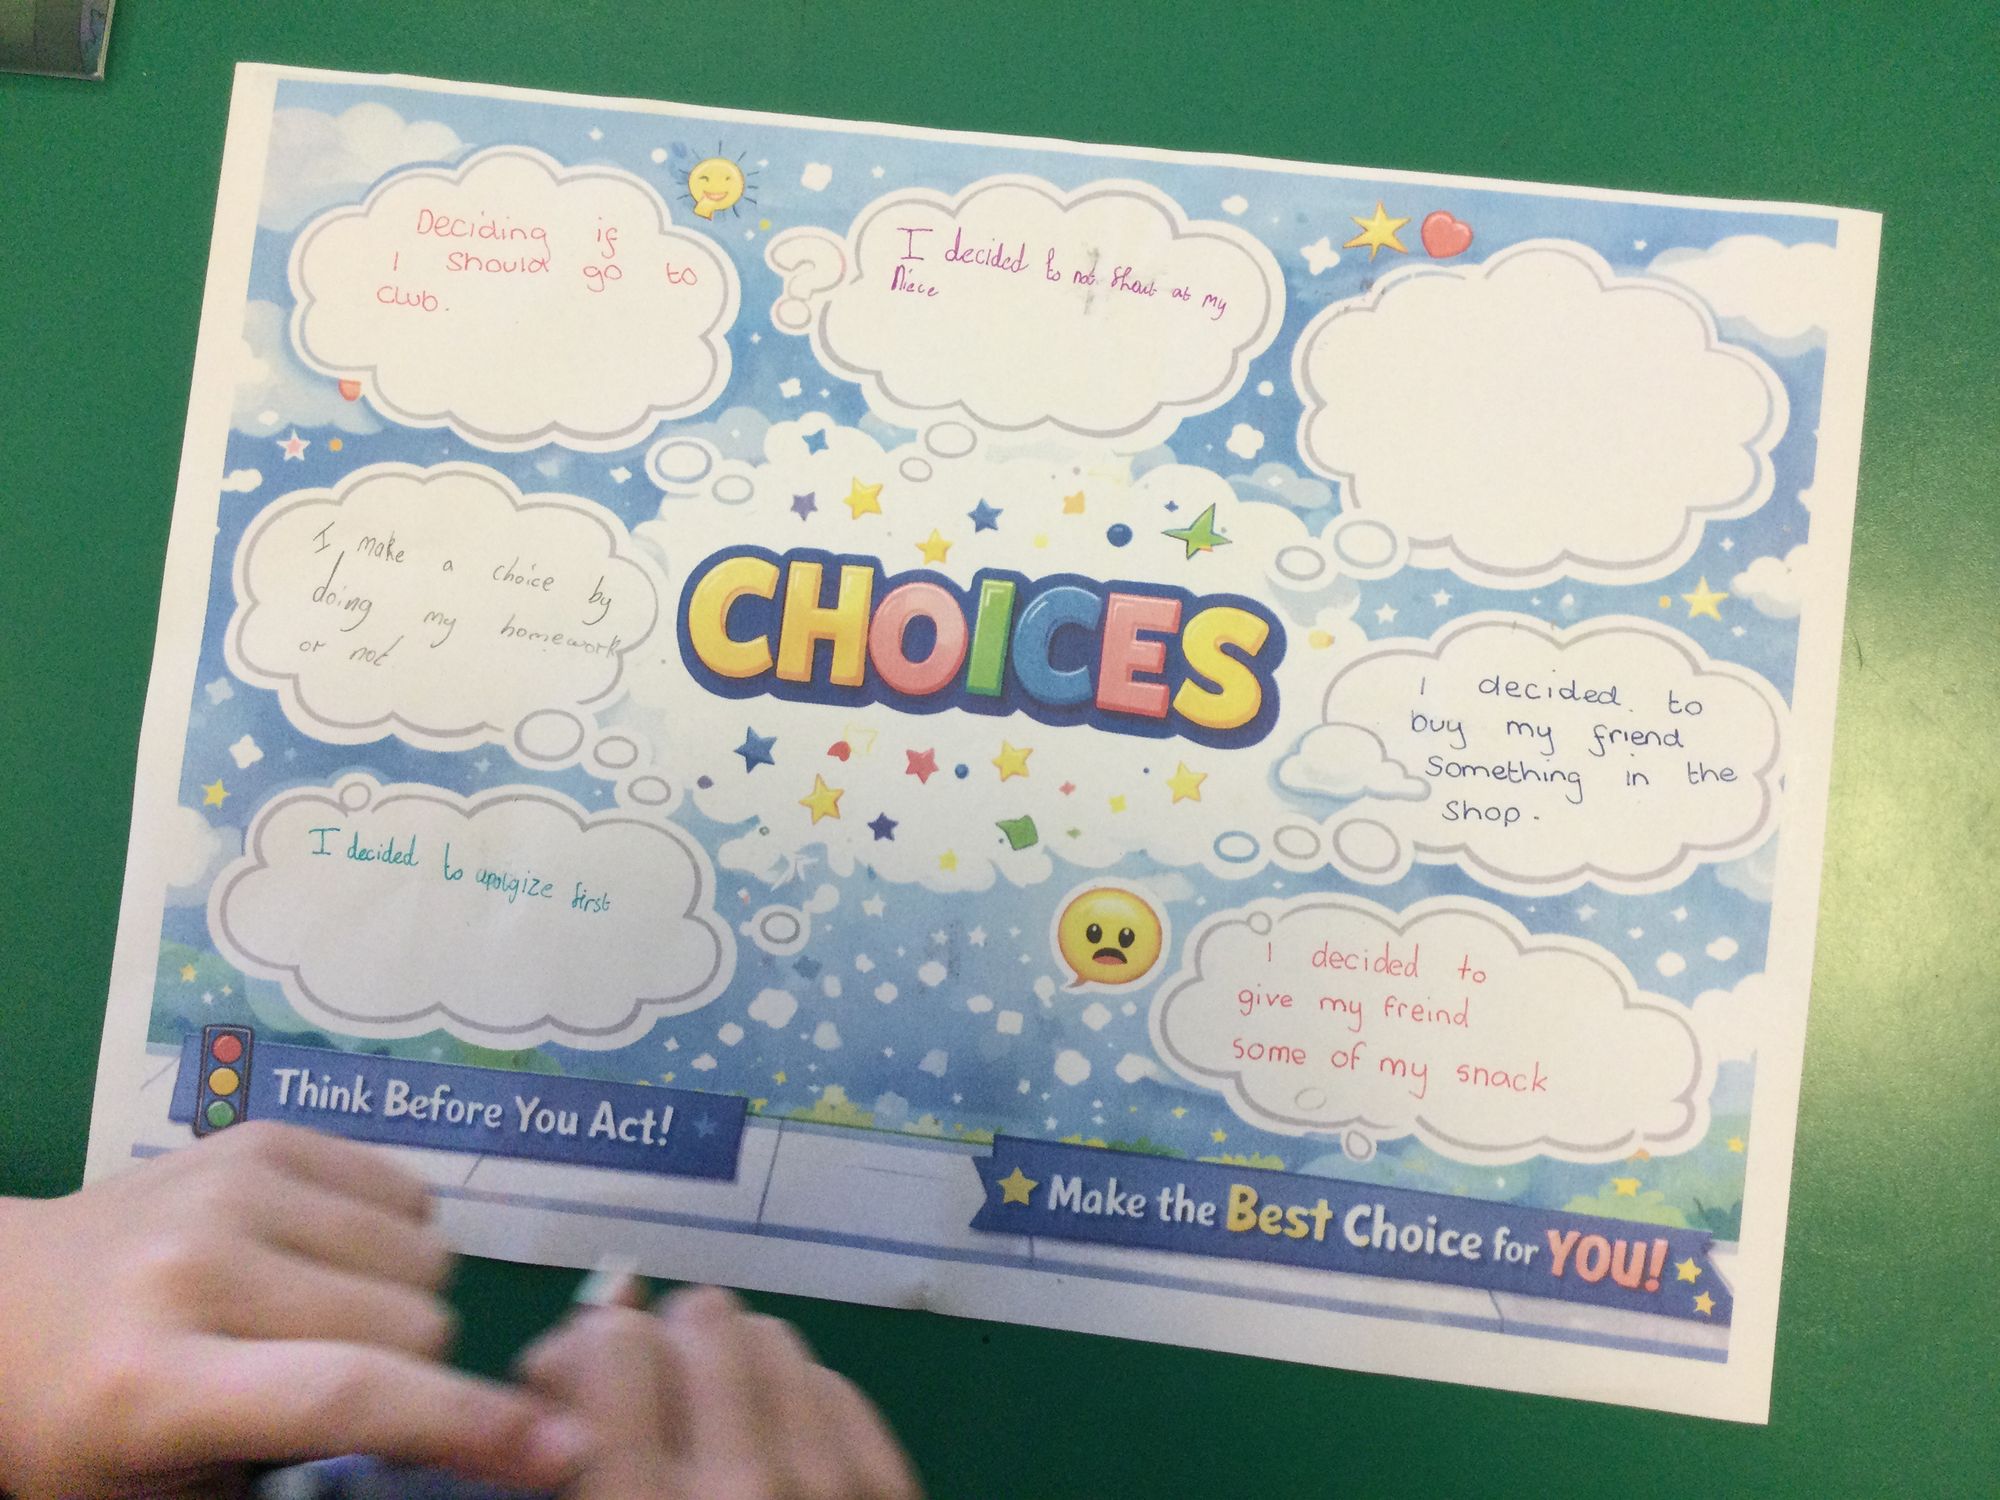 Deciding if
I should go to
club.
I decided to not shout at my
Niece
I make a choice by
doing my homework
or not
CHOICES
I decided. to
buy my friend
Something in the
Shop.
I decided to apolgize first
I decided to
give my freind
some of my snack
Think Before You Act!
Make the Best Choice for YOU!